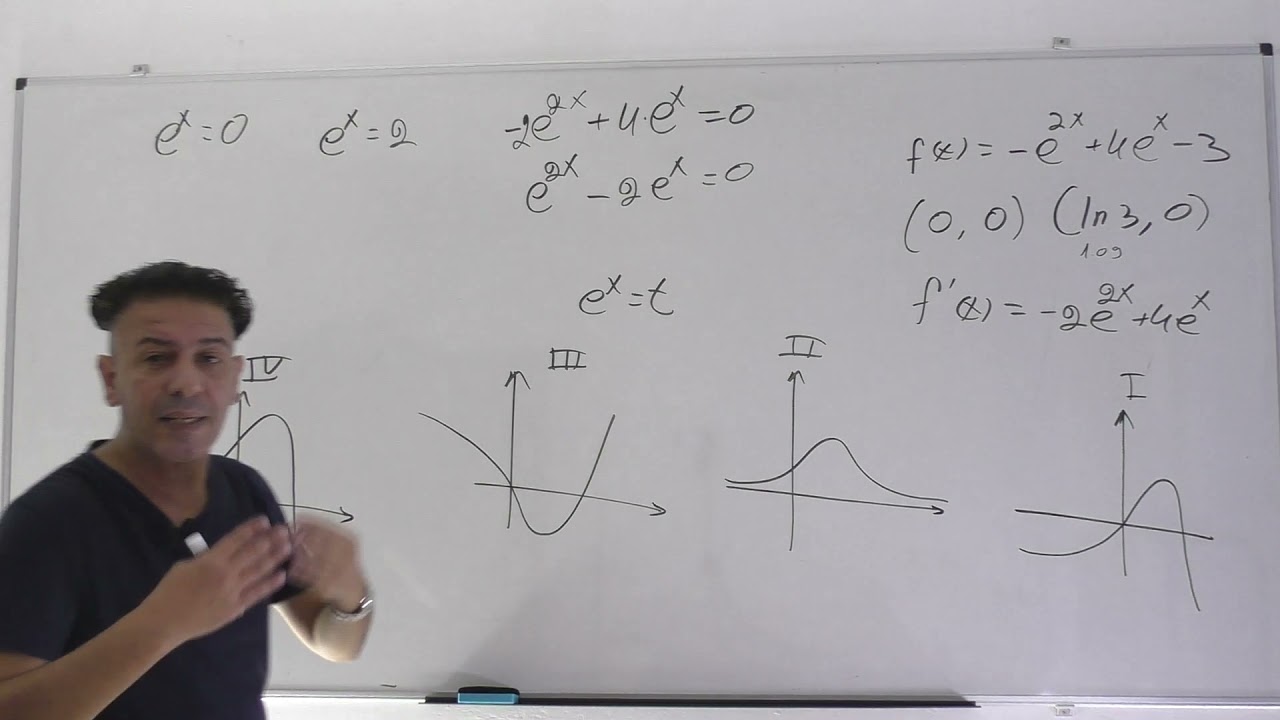 e^x = 0   e^x = 2   -2e^{2x} + 4·e^x = 0
e^{2x} - 2e^x = 0
e^x = t
f(x) = -e^{2x} + 4e^x - 3
(0, 0) (ln3, 0)
log
f'(x) = -2e^{2x} + 4e^x
IV III II I